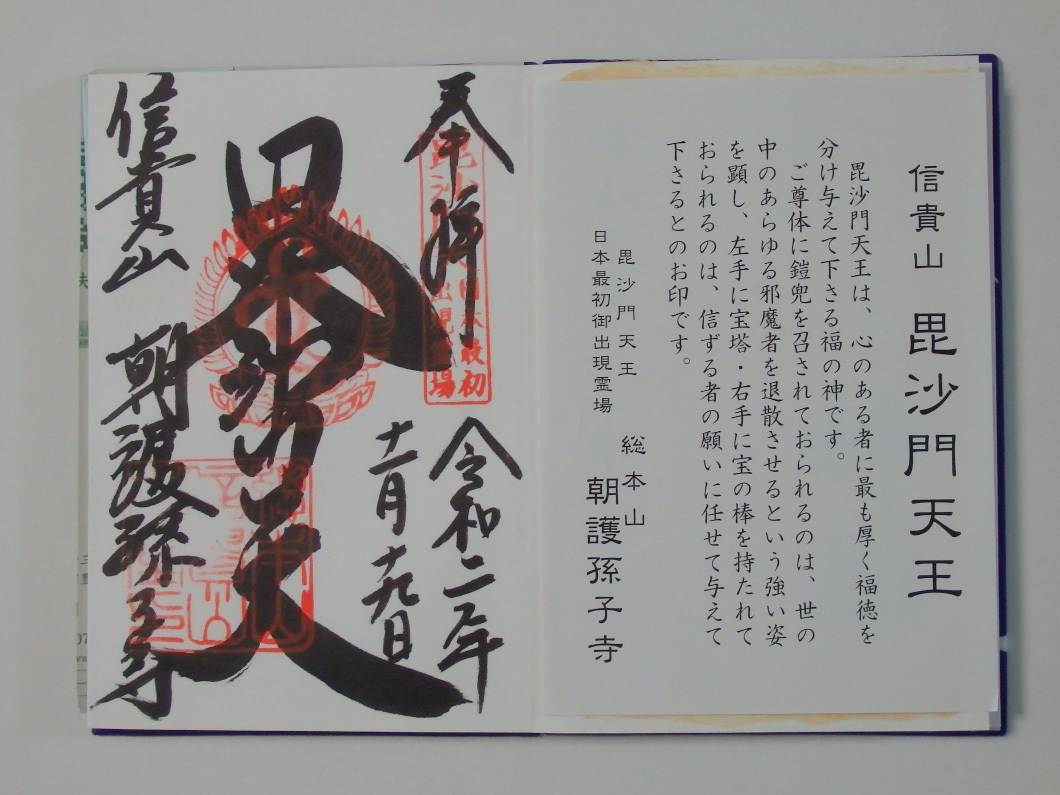 信貴山 毘沙門天王
毘沙門天王は、心のある者に最も厚く福徳を
分け与えて下さる福の神です。
ご尊体に鎧兜を召されておられるのは、世の
中のあらゆる邪魔者を退散させるという強い姿
を顕し、左手に宝塔・右手に宝の棒を持たれて
おられるのは、信ずる者の願いに任せて与えて
下さるとのお印です。
毘沙門天王
日本最初御出現霊場
総本山
朝護孫子寺
奉拝
毘沙
日本最初
出現霊場
令和二年
十一月十九日
毘沙門天
信貴山 朝護孫子寺